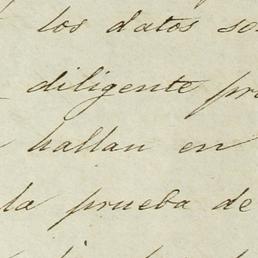 los datos so
diligente pr
hallan en
la prueba de